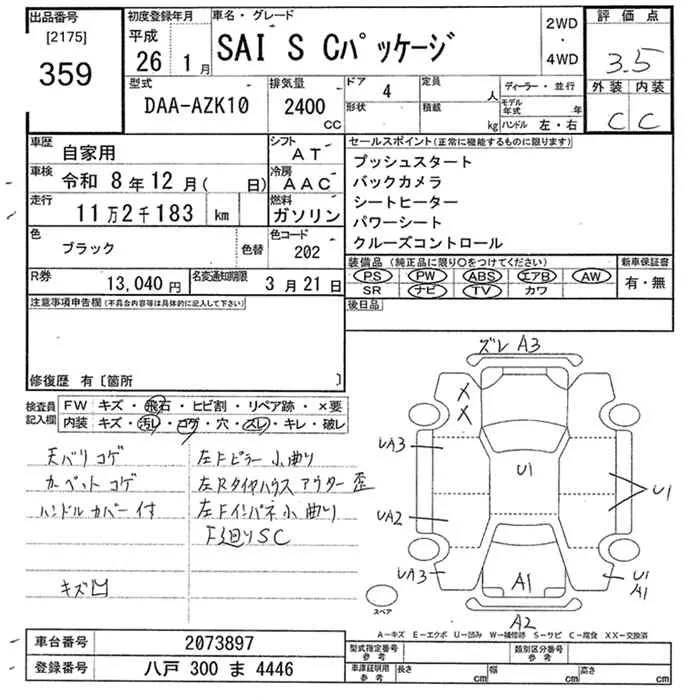 出品番号
[2175]
359
初度登録年月
平成
26年 1月
車名・グレード
SAI S Cパッケージ
2WD
・
4WD
評価点
3.5
外装 内装
C C
型式
DAA-AZK10
排気量
2400
cc
ドア 4
形状
定員 人
積載 kg
ディーラー・並行
モデル年式 年
ハンドル 左・右
車歴 自家用
シフト AT
車検 令和 8年12月( 日)
冷房 AAC
走行 11万2千183 km
燃料 ガソリン
色 ブラック 色替
色コード 202
R券 13,040円
名変通期限 3月21日
セールスポイント(正常に機能するものに限ります)
プッシュスタート
バックカメラ
シートヒーター
パワーシート
クルーズコントロール
装備品(純正品に限り○をつけてください)
PS PW ABS エアB AW
SR ナビ TV カワ
新車保証書
有・無
後日品
注意事項申告欄(不具合内容等は具体的に記入して下さい)
修復歴 有〔箇所 〕
検査員記入欄
FW キズ・飛石・ヒビ割・リペア跡・×要
内装 キズ・汚レ・コゲ・穴・ズレ・キレ・破レ
天バリ コゲ
カーペット コゲ
ハンドル カバー 付
キズ凹
左Fピラー 小曲り
左Rタイヤハウス アウター 歪
左Fインパネ 小曲り
F廻りSC
ズレ A3
X
X
UA3
U1
U1
UA2
UA3
A1
U1
A1
スペア
A2
A−キズ E−エクボ U−凹み W−補修跡 S−サビ C−腐食 XX−交換済
車台番号 2073897
登録番号 八戸 300 ま 4446
型式指定番号 参考
類別区分番号 参考
車庫証明用 参考
長さ cm 幅 cm 高さ cm